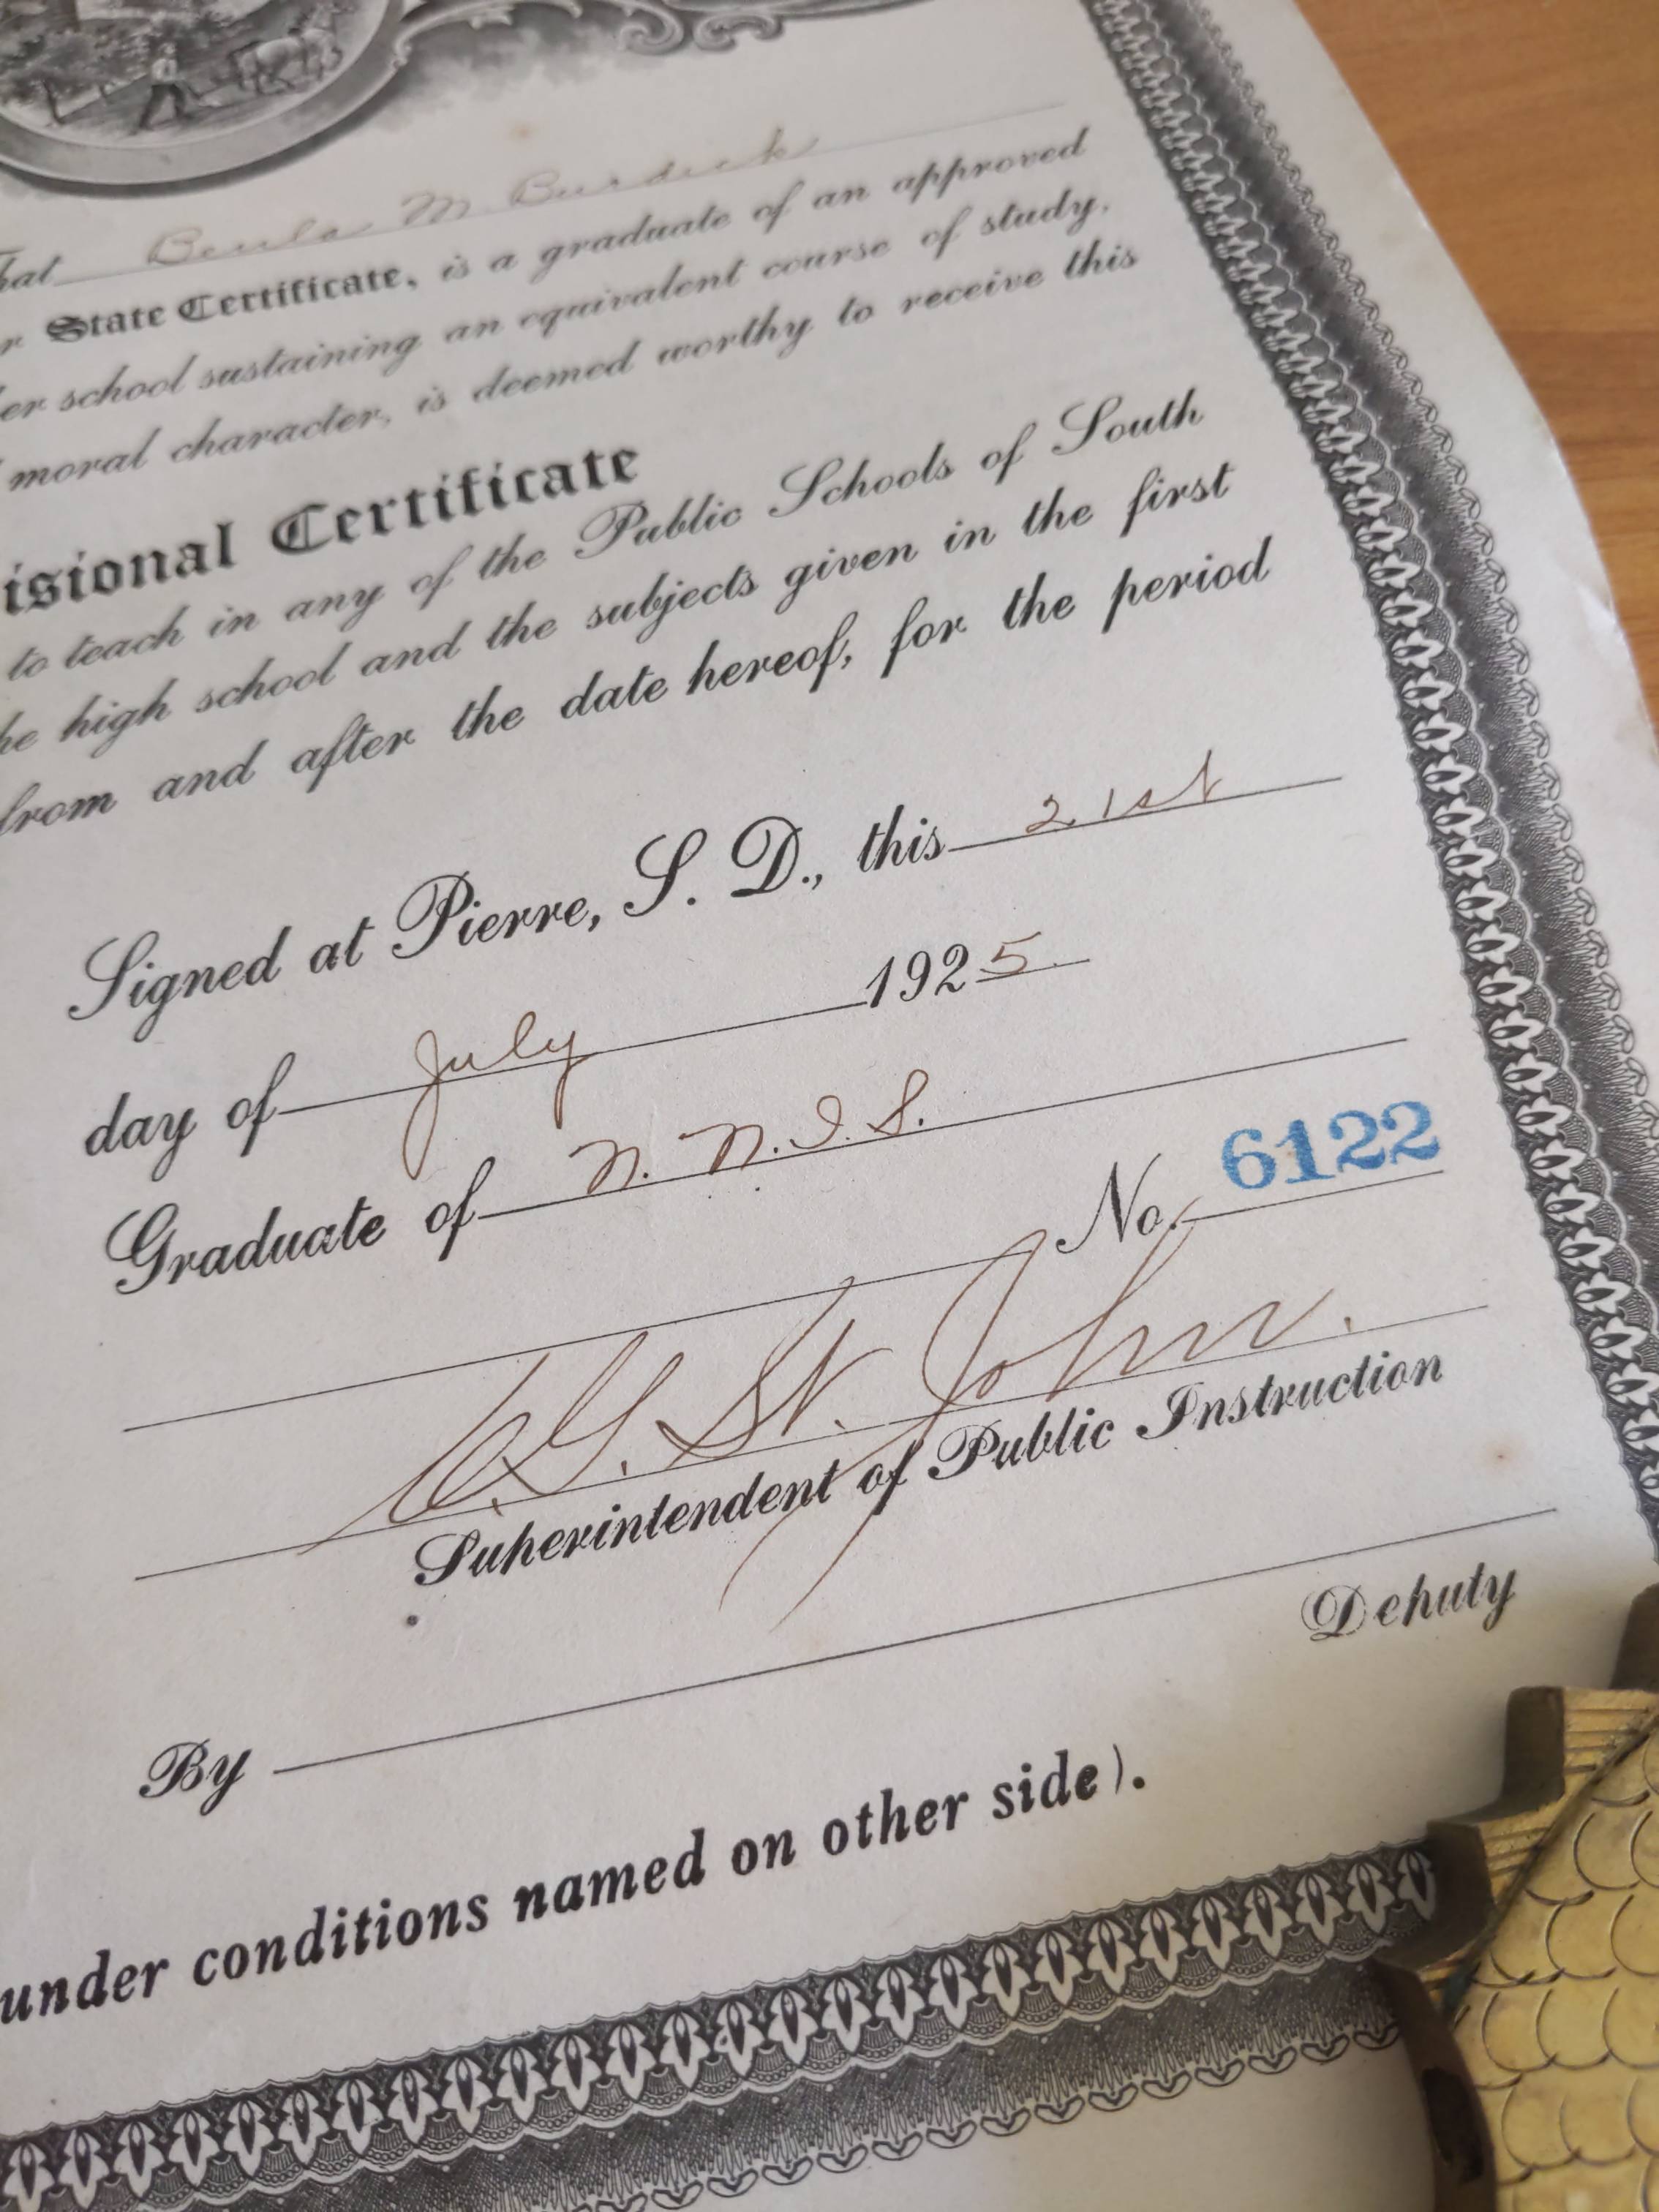 That Beula M Burdick
r State Certificate, is a graduate of an approved
er school sustaining an equivalent course of study,
moral character, is deemed worthy to receive this
isional Certificate
to teach in any of the Public Schools of South
he high school and the subjects given in the first
from and after the date hereof, for the period
Signed at Pierre, S. D., this 21st
day of July 1925.
Graduate of N. N. I. S.
No. 6122
C. G. St. John.
Superintendent of Public Instruction
Deputy
By
under conditions named on other side).